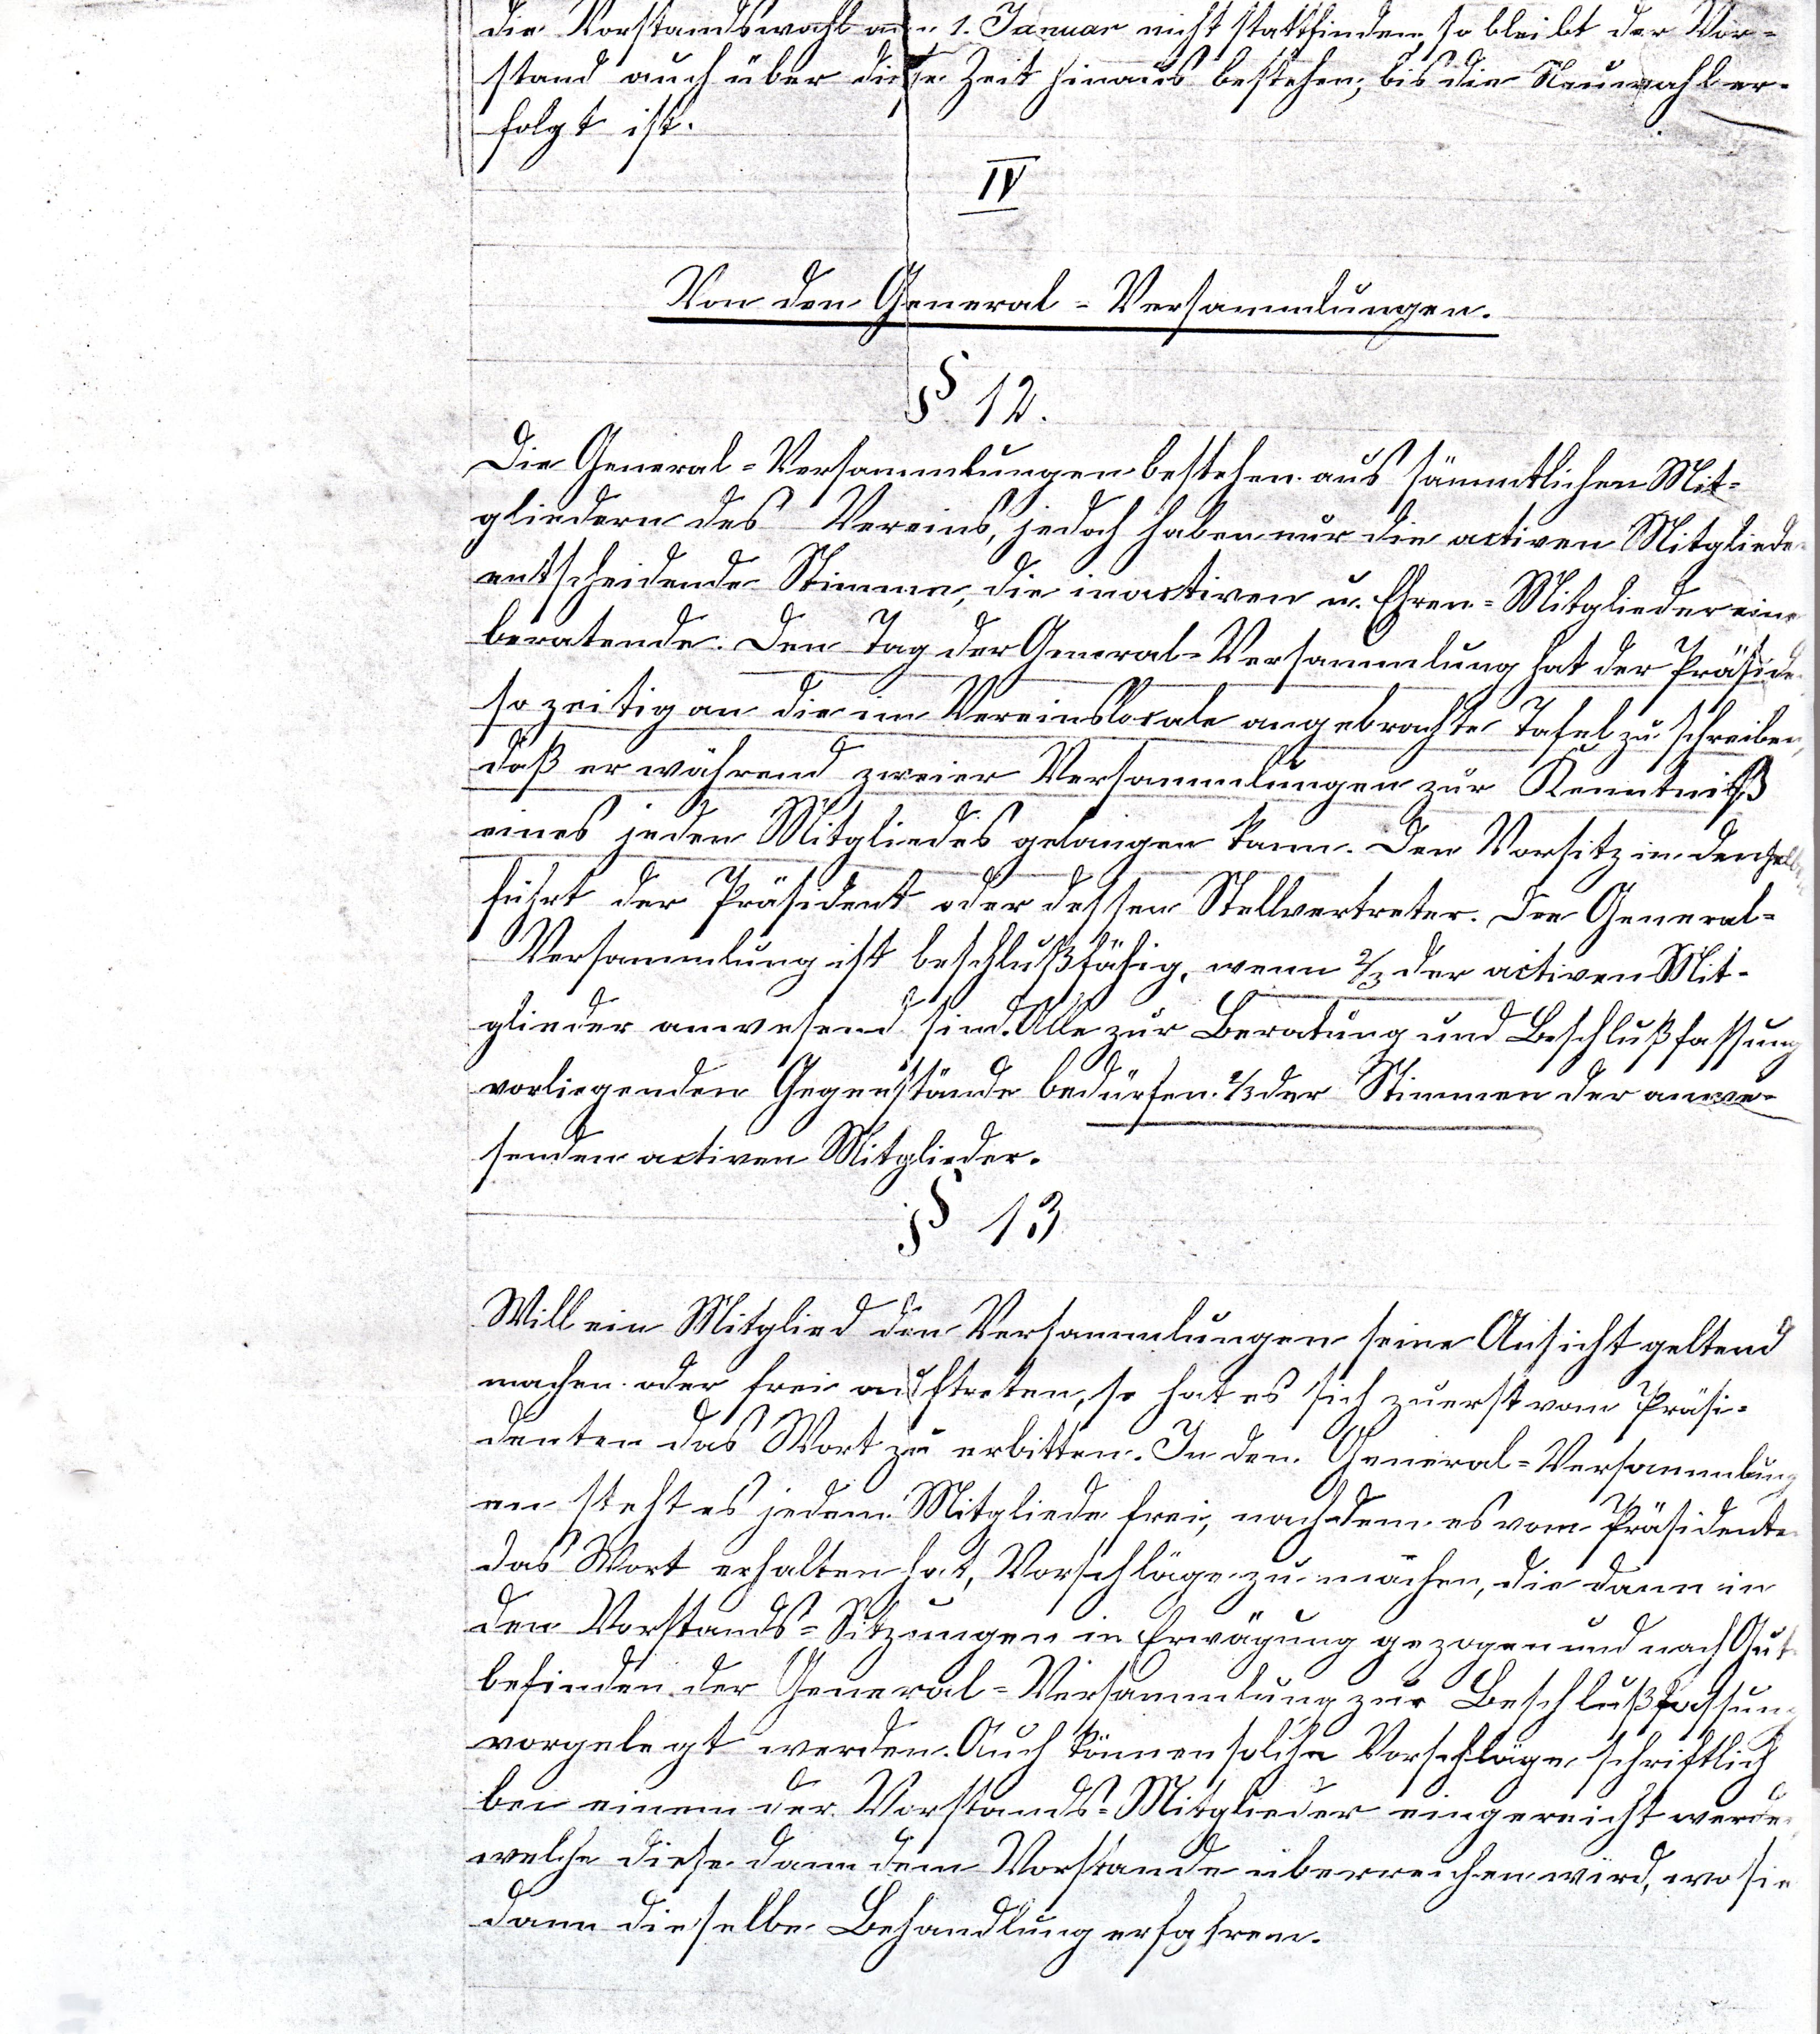 die Vorstandswahl am 1. Januar nicht stattfinden, so bleibt der Vor-
stand auch über diese Zeit hinaus bestehen, bis die Neuwahl er-
folgt ist.
IV
Von den General-Versammlungen.
§ 12.
Die General-Versammlungen bestehen aus sämmtlichen Mit-
gliedern des Vereins, jedoch haben nur die activen Mitglieder
entscheidende Stimme, die inactiven u. Ehren-Mitglieder eine
beratende. Den Tag der General-Versammlung hat der Präside
so zeitig an die im Vereinslocale angebrachte Tafel zu schreiben,
daß er während zweier Versammlungen zur Kenntniß
eines jeden Mitgliedes gelangen kann. Den Vorsitz in denselben
führt der Präsident oder dessen Stellvertreter. Die General-
Versammlung ist beschlußfähig, wenn 2/3 der activen Mit-
glieder anwesend sind. Alle zur Beratung und Beschlußfassung
vorliegenden Gegenstände bedürfen 2/3 der Stimmen der anwe-
senden activen Mitglieder.
§ 13
Will ein Mitglied den Versammlungen seine Ansicht geltend
machen oder frei auftreten, so hat es sich zuerst vom Präsi-
denten das Wort zu erbitten. In den General-Versammlung
en steht es jedem Mitgliede frei, nachdem es vom Präsidente
das Wort erhalten hat, Vorschläge zu machen, die dann in
den Vorstands-Sitzungen in Erwägung gezogen und nach Gut
befinden der General-Versammlung zur Beschlußfassung
vorgelegt werden. Auch können solche Vorschläge schriftlich
bei einem der Vorstands-Mitglieder eingereicht werde
welche diese dann dem Vorstande überreichen wird, wo sie
dann dieselbe Behandlung erfahren.